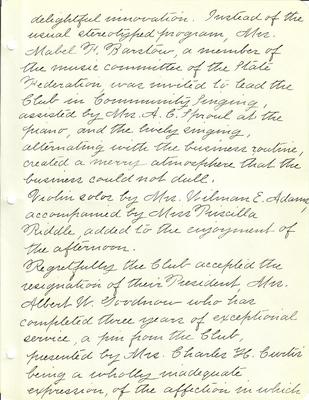 delightful innovation. Instead of the
usual stereotyped program, Mrs.
Mabel F. Barstow, a member of
the music committee of the State
Federation was invited to lead the
Club in Community Singing,
assisted by Mrs. A. C. Sproul at the
piano, and the lively singing,
alternating with the business routine,
created a merry atmosphere that the
business could not dull.
Violin solos by Mrs. Wilman E. Adams,
accompanied by Miss Priscilla
Riddle, added to the enjoyment of
the afternoon.
Regretfully the Club accepted the
resignation of their President, Mrs.
Albert W. Goodnow who has
completed three years of exceptional
service, a pin from the Club,
presented by Mrs. Charles H. Curtis
being a wholly inadequate
expression, of the affection in which